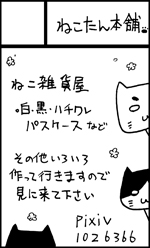 ねこたん本舗
ねこ雑貨屋
•白・黒・ハチワレ
パスケースなど
その他いろいろ
作って行きますので
見に来て下さい
Pixiv
1026366